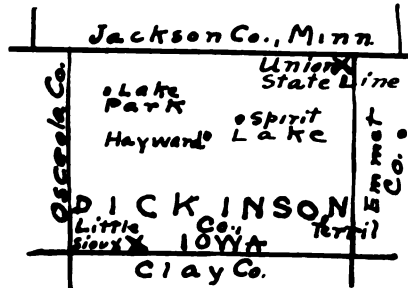 Jackson Co., Minn
Union
State Line
Osceola Co.
Lake
Park
Spirit
Lake
Hayward
Emmet
Co.
DICKINSON
Co.,
IOWA
Little
Sioux
Terril
Clay Co.